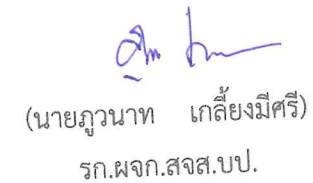 (นายภูวนาท เกลี้ยงมีศรี)
รก.ผจก.สจส.บป.